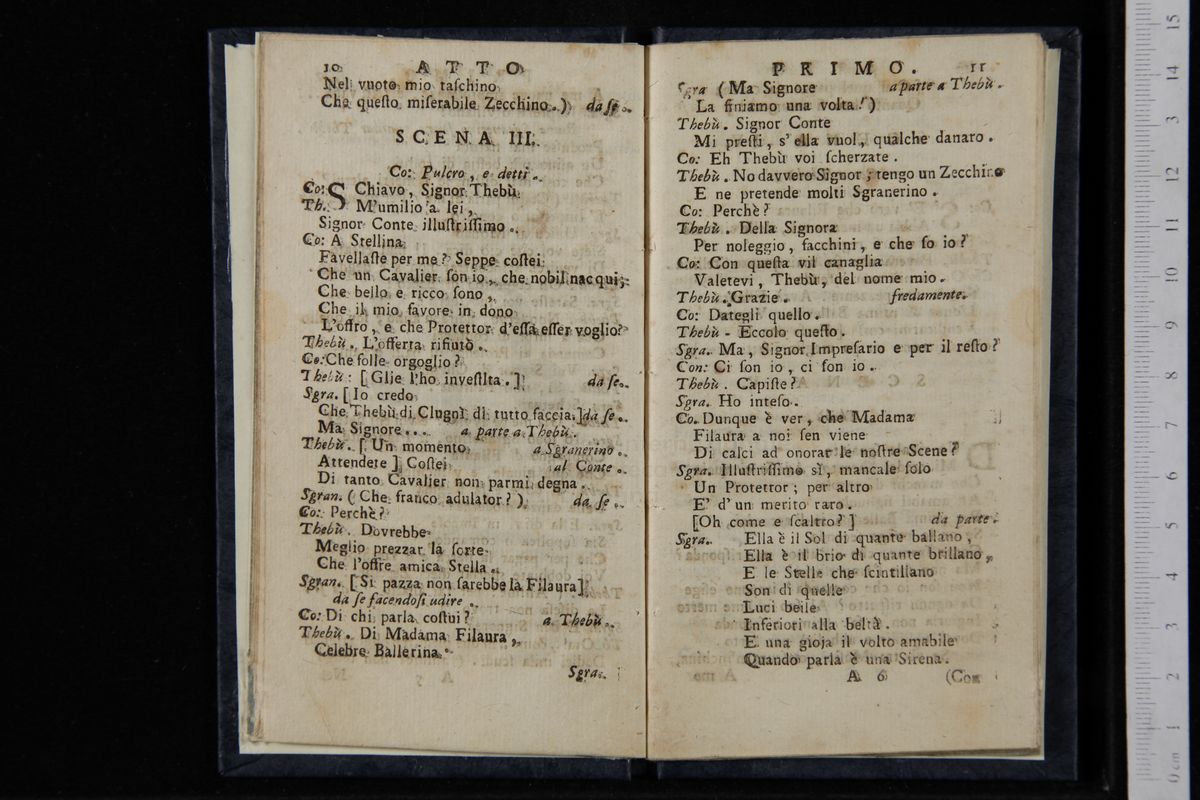 10 ATTO
Nel vuoto mio taſchino
Che queſto miſerabile Zecchino.) da ſe.
SCENA III.
Co: Pulcro, e detti.
Co: SChiavo, Signor Thebù
Th. M'umilio a lei,
Signor Conte illuſtriſſimo.
Co: A Stellina
Favellaſte per me? Seppe coſtei
Che un Cavalier ſon io, che nobil nacqui;
Che bello e ricco ſono,
Che il mio favore in dono
L'offro, e che Protettor d'eſſa eſſer voglio?
Thebù. L'offerta rifiutò.
Co: Che folle orgoglio?
Thebù: [Glie l'ho inveſtita.] da ſe.
Sgra. [Io credo
Che Thebù di Clugnì di tutto faccia.] da ſe.
Ma Signore... a parte a Thebù.
Thebù. [Un momento a Sgranerino.
Attendete] Coſtei al Conte.
Di tanto Cavalier non parmi degna.
Sgran. (Che franco adulator?) da ſe.
Co: Perchè?
Thebù. Dovrebbe
Meglio prezzar la ſorte
Che l'offre amica Stella.
Sgran. [Si pazza non ſarebbe la Filaura]
da ſe facendoſi udire.
Co: Di chi parla coſtui? a Thebù.
Thebù. Di Madama Filaura,
Celebre Ballerina.
Sgra.
PRIMO. 11
Sgra (Ma Signore a parte a Thebù.
La finiamo una volta?)
Thebù. Signor Conte
Mi preſti, s'ella vuol, qualche danaro.
Co: Eh Thebù voi ſcherzate.
Thebù. No davvero Signor; tengo un Zecchino
E ne pretende molti Sgranerino.
Co: Perchè?
Thebù. Della Signora
Per noleggio, facchini, e che ſo io?
Co: Con queſta vil canaglia
Valetevi, Thebù, del nome mio.
Thebù. Grazie. fredamente.
Co: Dategli quello.
Thebù - Eccolo queſto.
Sgra. Ma, Signor Impreſario e per il reſto?
Con: Ci ſon io, ci ſon io.
Thebù. Capiſte?
Sgra. Ho inteſo.
Co. Dunque è ver, che Madama
Filaura a noi ſen viene
Di calci ad onorar le noſtre Scene?
Sgra. Illuſtriſſimo sì, mancale ſolo
Un Protettor; per altro
E' d'un merito raro.
[Oh come e ſcaltro?] da parte.
Sgra. Ella è il Sol di quante ballano,
Ella è il brio di quante brillano,
E le Stelle che ſcintillano
Son di quelle
Luci belle
Inferiori alla beltà.
E una gioja il volto amabile
Quando parla è una Sirena.
A 6 (Con
15
14
13
12
11
10
9
8
7
6
5
4
3
2
1
0 cm